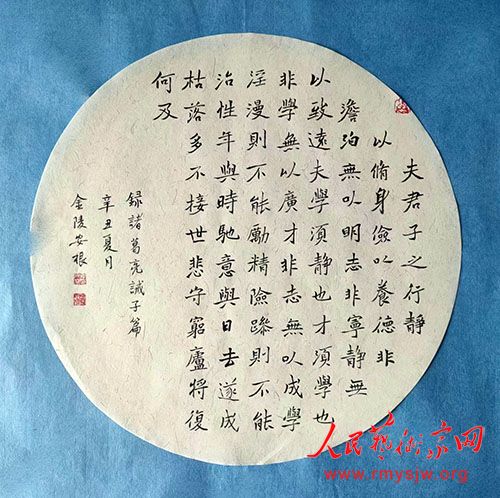 夫君子之行靜
以脩身儉以養德非
澹泊無以明志非寧靜無
以致遠夫學須靜也才須學也
非學無以廣才非志無以成學
淫漫則不能勵精險躁則不能
治性年與時馳意與日去遂成
枯落多不接世悲守窮廬將復
何及
錄諸葛亮誡子篇
辛丑夏月
金陵安根
人民藝術家网
www.rmysjw.org